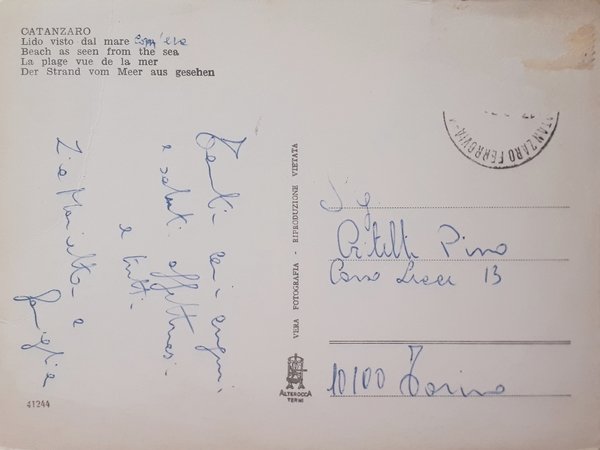 CATANZARO
Lido visto dal mare com'era
Beach as seen from the sea
La plage vue de la mer
Der Strand vom Meer aus gesehen
Tanti cari auguri
e saluti affettuosi
a tutti.
Zia Marietta e
famiglia
VERA FOTOGRAFIA - RIPRODUZIONE VIETATA
ALTEROCCA
TERNI
41244
CATANZARO FERROVIA
Sig
Critelli Pino
Corso Lecce 13
10100 Torino